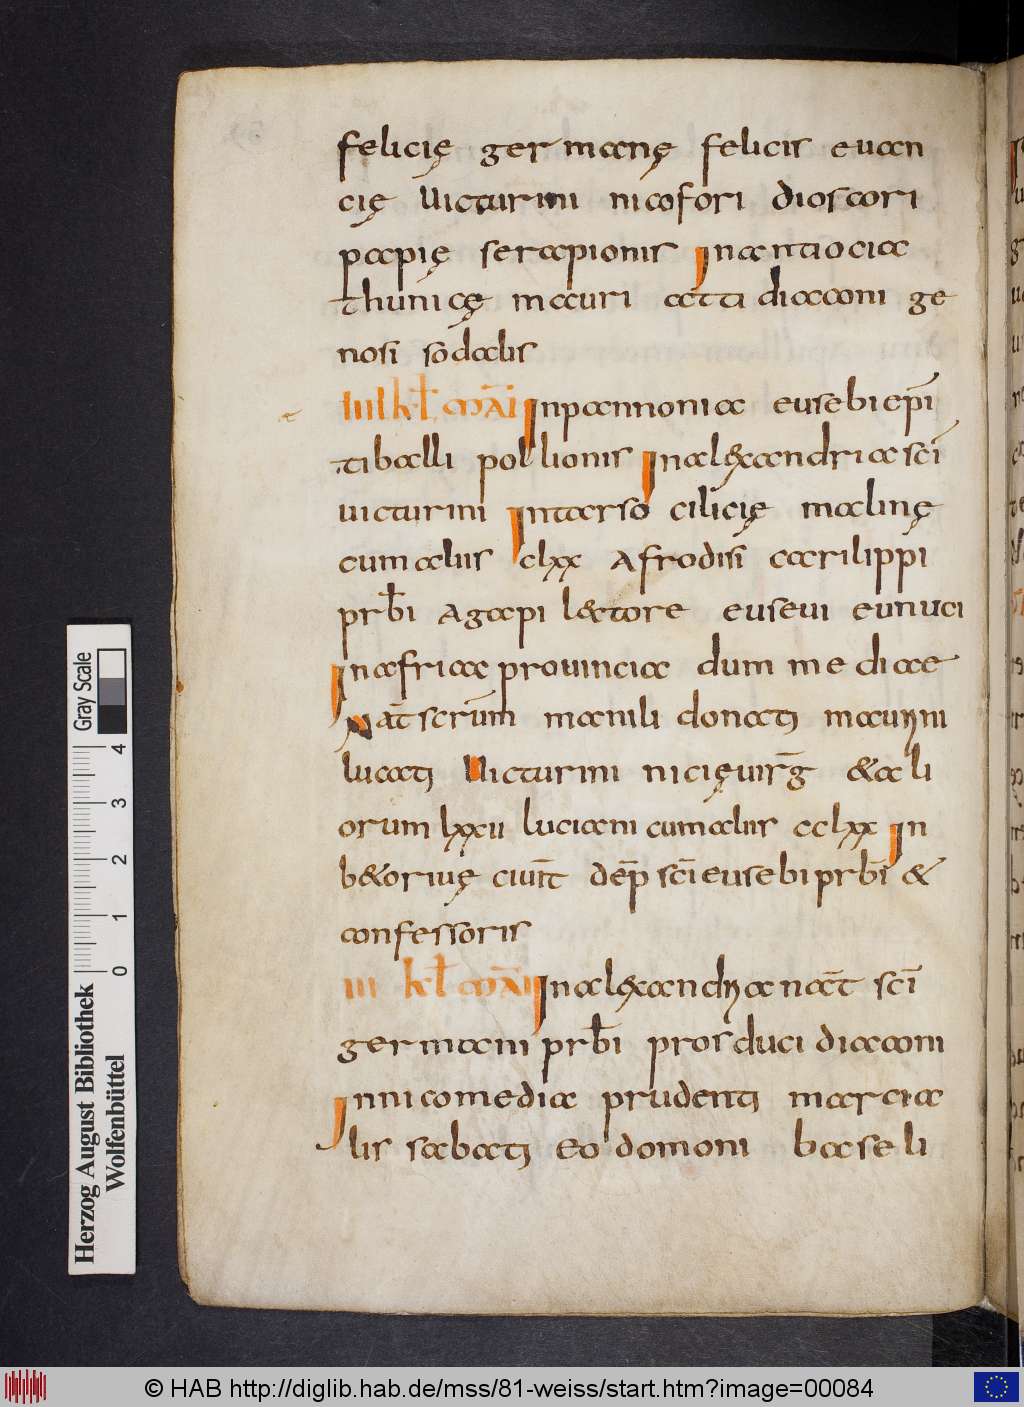 felicię germanę felicis euan
cię Uicturini nicofori dioscori
papię serapionis In antiociae
thunicę mauri acti diaconi ge
nosi sodalis
IIII kł mai Inpannoniae eusebi ep̄i
tiballi pollionis Inalęxandriae sc̄i
uicturini Intarso cilicię malinę
cum aliis clxx Afrodisi carilippi
prb̄i Agapi lectore euseui eunuci
Inafrica prouinciae dum mediae
Nat̄ scr̄um manili donati maurini
lucati Uicturini nicię uirḡ & ali
orum lxxii luciani cum aliis cclxx In
b&oriuę ciuit̄ dep̄ sc̄i eusebi prb̄i &
confessoris
III kł mai Inalęxandria nat̄ sc̄i
germani prb̄i prosduci diaconi
Innicomediae prudenti marcia
lis sabati Eodomoni baseli
Herzog August Bibliothek
Wolfenbüttel
Gray Scale
4 3 2 1 0
© HAB http://diglib.hab.de/mss/81-weiss/start.htm?image=00084